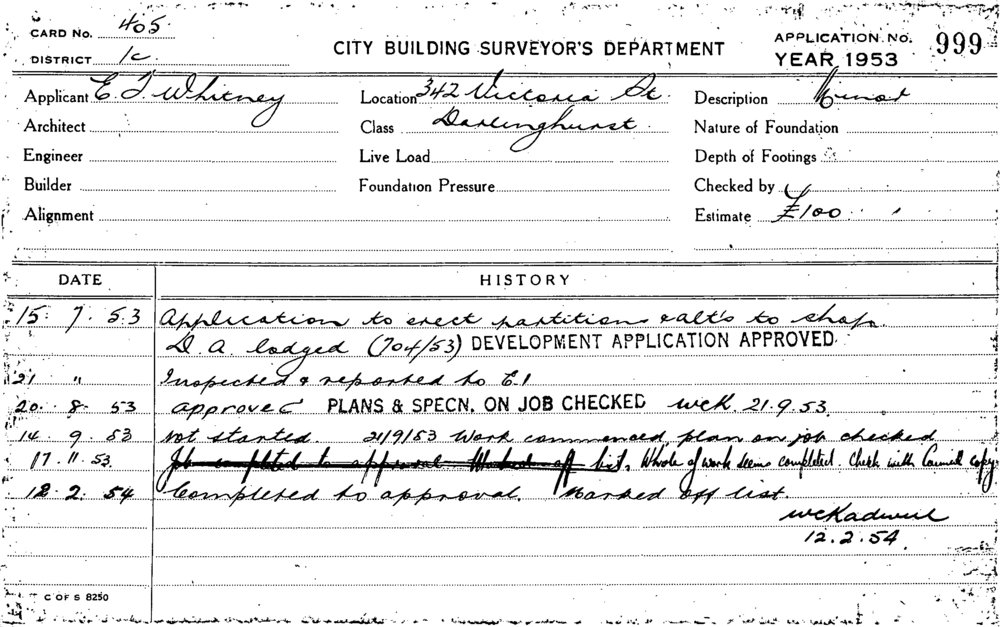 CARD No. 405
DISTRICT 1c.
CITY BUILDING SURVEYOR'S DEPARTMENT
APPLICATION No. 999
YEAR 1953
Applicant E. T. Whitney
Location 342 Victoria St.
Description Minor
Architect
Class Darlinghurst.
Nature of Foundation
Engineer
Live Load
Depth of Footings
Builder
Foundation Pressure
Checked by
Alignment
Estimate £100
DATE HISTORY
15. 7. 53 Application to erect partitions & alt's to shop.
D. A. lodged (704/53) DEVELOPMENT APPLICATION APPROVED.
21 " Inspected & reported to E.1
20. 8. 53 approved PLANS & SPECN. ON JOB CHECKED WCK. 21.9.53.
14. 9. 53 not started. 21/9/53 Work commenced, plan on job checked
17. 11. 53. Job completed to approval Marked off list. Whole of work seems completed. Check with Council copy.
12. 2. 54 Completed to approval. Marked off list.
WCKadwell
12.2.54.
C OF S 8250